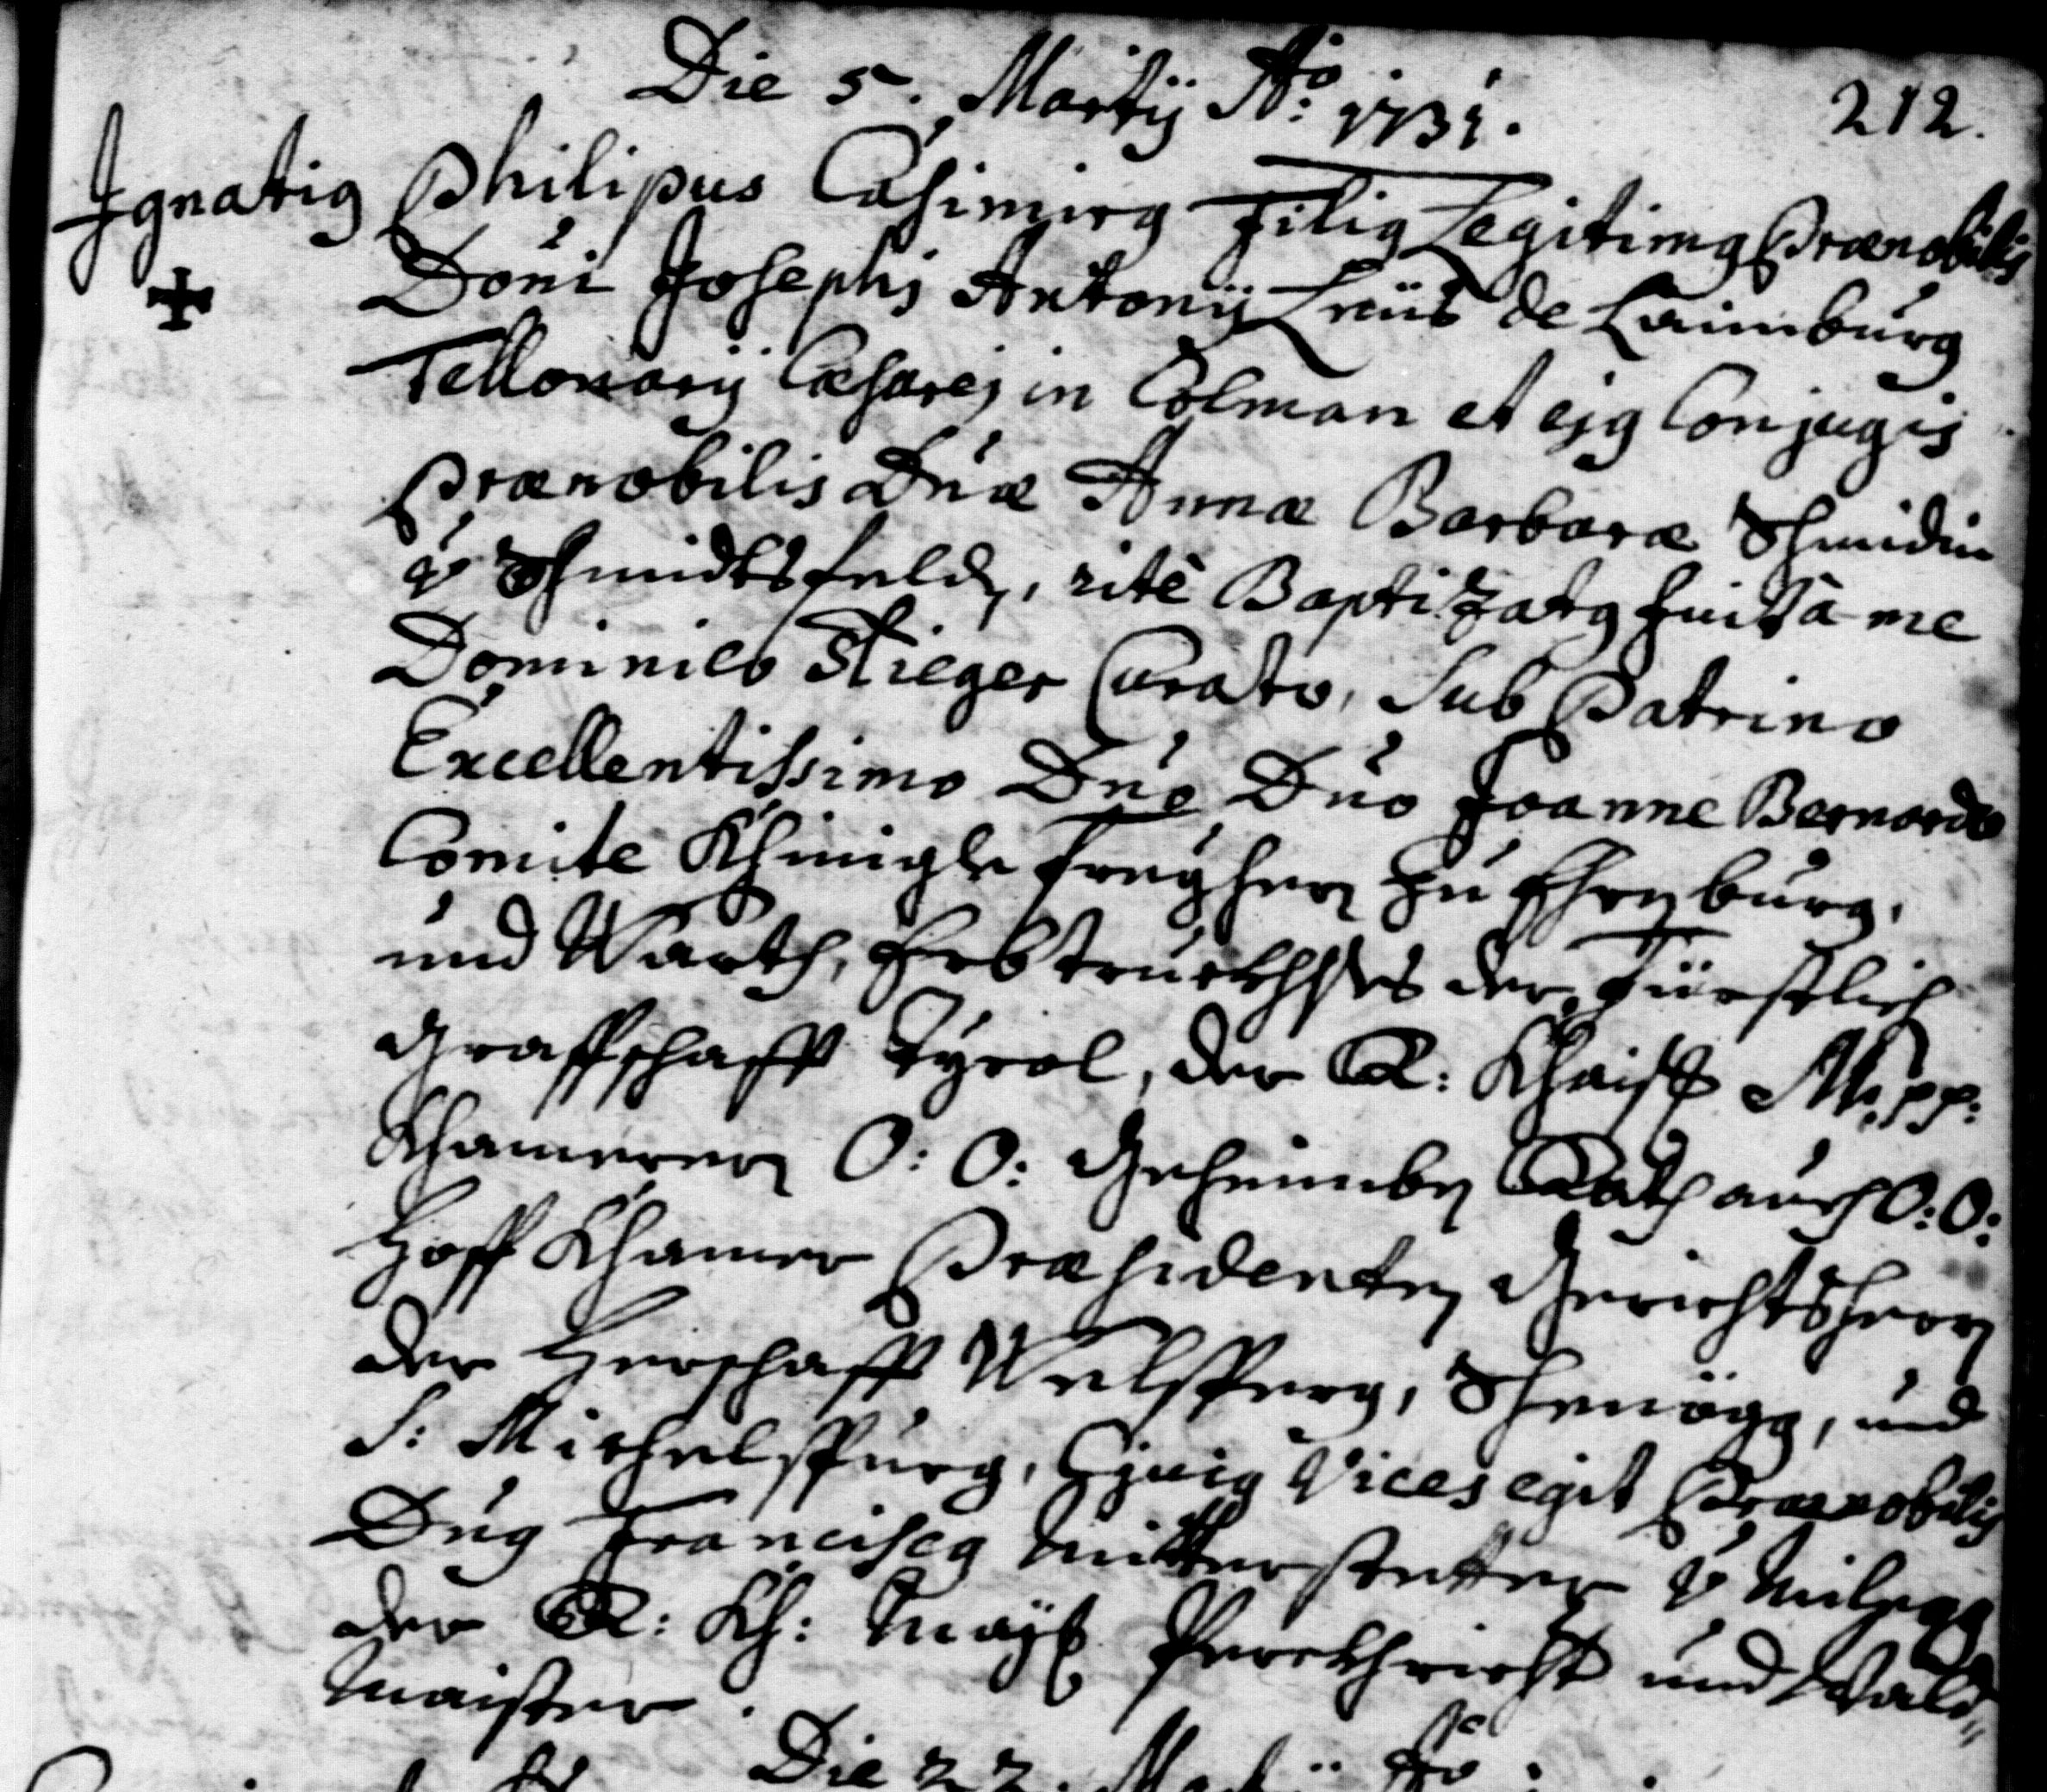 212.
Die 5. Martij Ao: 1731.
Ignatig Philipus Casimirg Filig Legitimg Prænobilis
Doni Josephi Antonij Leiis de Laimburg
Tellonarij Cæsarej in Colman et ejg Conjugis
Prænobilis Dnæ Annæ Barbaræ Schmidin
v Schmidtsfeldt, rite Baptizatg fuit â me
Dominico Stieger Curato, sub Patrino
Excellentissimo Dno Dno Joanne Bernardo
Comite Khinigl Freyherr zu Ehrnburg,
und Warth, Erbtruckhses der Fürstlich
Graffschafft Tyrol, der R: Khaiß M: pp:
Khamerern O: O: Geheimben Rath auch O: O:
Hoff Khamer Præsidenten Gerichtsherrn
der Herschafft Welsperg, Schenögg, und
S: Michelspurg, Cjuig Vices egit Prænobilis
Dng Franciscg Mitterstetter v
der R: Kh: Mayt Perckhricht und Wald„
maister.
Die 22. Martij Ao